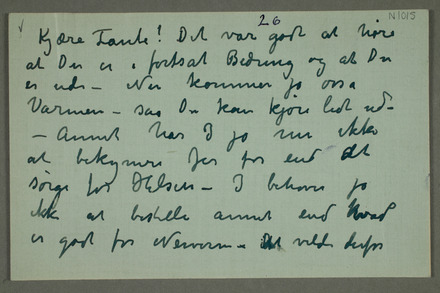 26
N1015
Kjære Tante! Det var godt at høre
at Du er i fortsat Bedring og at Du
er ude – Nu kommer jo ossa
Varmen – saa Du kan kjøre lidt ud –
– Annet har I jo nu ikke
at bekymre Jer for end at
sørge for Helsen – I behøver jo
ikke at bestille annet end hvad
er godt for Nerverne – Det vilde derfor